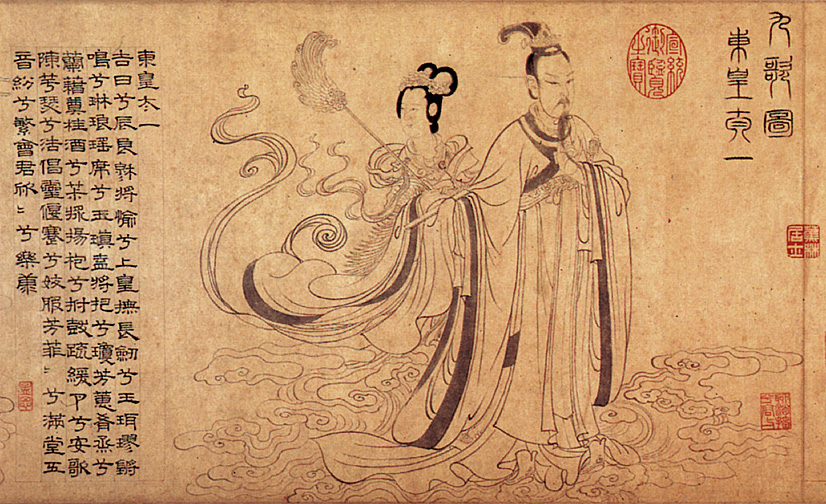 九歌圖
東皇太一
宣統
御覽
之寶
東皇太一
吉日兮辰良穆將愉兮上皇撫長劍兮玉珥璆鏘
鳴兮琳琅瑤席兮玉瑱盍將把兮瓊芳蕙肴烝兮
蘭藉奠桂酒兮茮漿揚枹兮拊鼓疏緩卪兮安歌
陳竽瑟兮浩倡靈偃蹇兮姣服芳菲〻兮滿堂五
音紛兮繁會君欣〻兮樂康